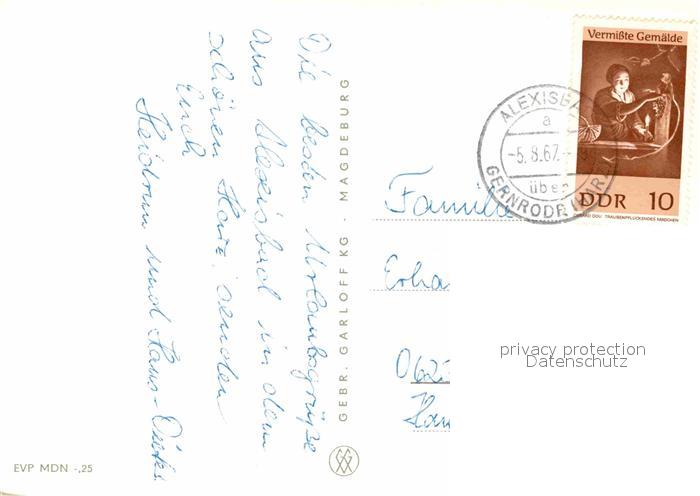 Die besten Urlaubsgrüße
aus Alexisbad in dem
schönen Harz senden
Euch
Heidrun und Hans-Dieter
GEBR. GARLOFF KG · MAGDEBURG
EVP MDN -,25
Vermißte Gemälde
DDR 10
GERARD DOU: TRAUBENPFLÜCKENDES MÄDCHEN
ALEXISBA
a
-5.8.67.
über
GERNRODE (HARZ)
Familie
Erha
062
Han
privacy protection
Datenschutz